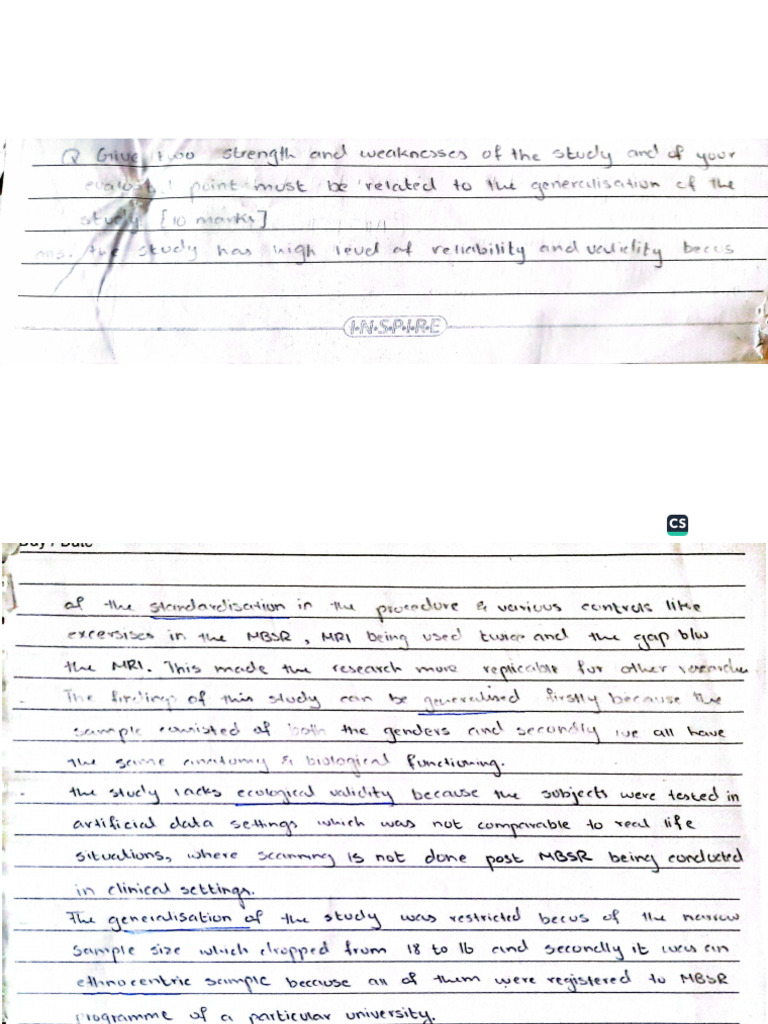 Q Give two strength and weaknesses of the study and of your
evaluat. 1 point must be related to the generalisation of the
study. [10 marks]
ans. the study has high level of reliability and validity becus
I·N·S·P·I·R·E
CS
Day / Date
of the standardisation in the procedure & various controls like
excersises in the MBSR, MRI being used twice and the gap b/w
the MRI. This made the research more replicable for other researcher
The findings of this study can be generalised firstly because the
sample consisted of both the genders and secondly we all have
the same anatomy & biological functioning.
the study lacks ecological validity because the subjects were tested in
artificial data settings which was not comparable to real life
situations, where scanning is not done post MBSR being conducted
in clinical settings.
The generalisation of the study was restricted becus of the narrow
sample size which dropped from 18 to 16 and secondly it was an
ethnocentric sample because all of them were registered to MBSR
programme of a particular university.